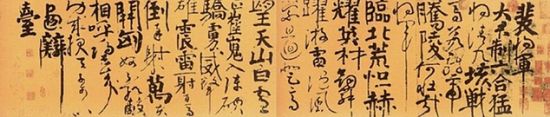 裴將軍
大君制六合猛
將清九垓戰
馬若龍虎
騰陵何壯哉
將軍
臨北荒烜赫
耀英材劍舞
躍游雷隨風
縈且迴登高
望天山白雲
正崔嵬入陣破
驕虜威聲
雄震雷一射百馬
倒再射萬夫
開匈奴不敢敵
相呼歸去來
功成報天子可以
畫麟
臺